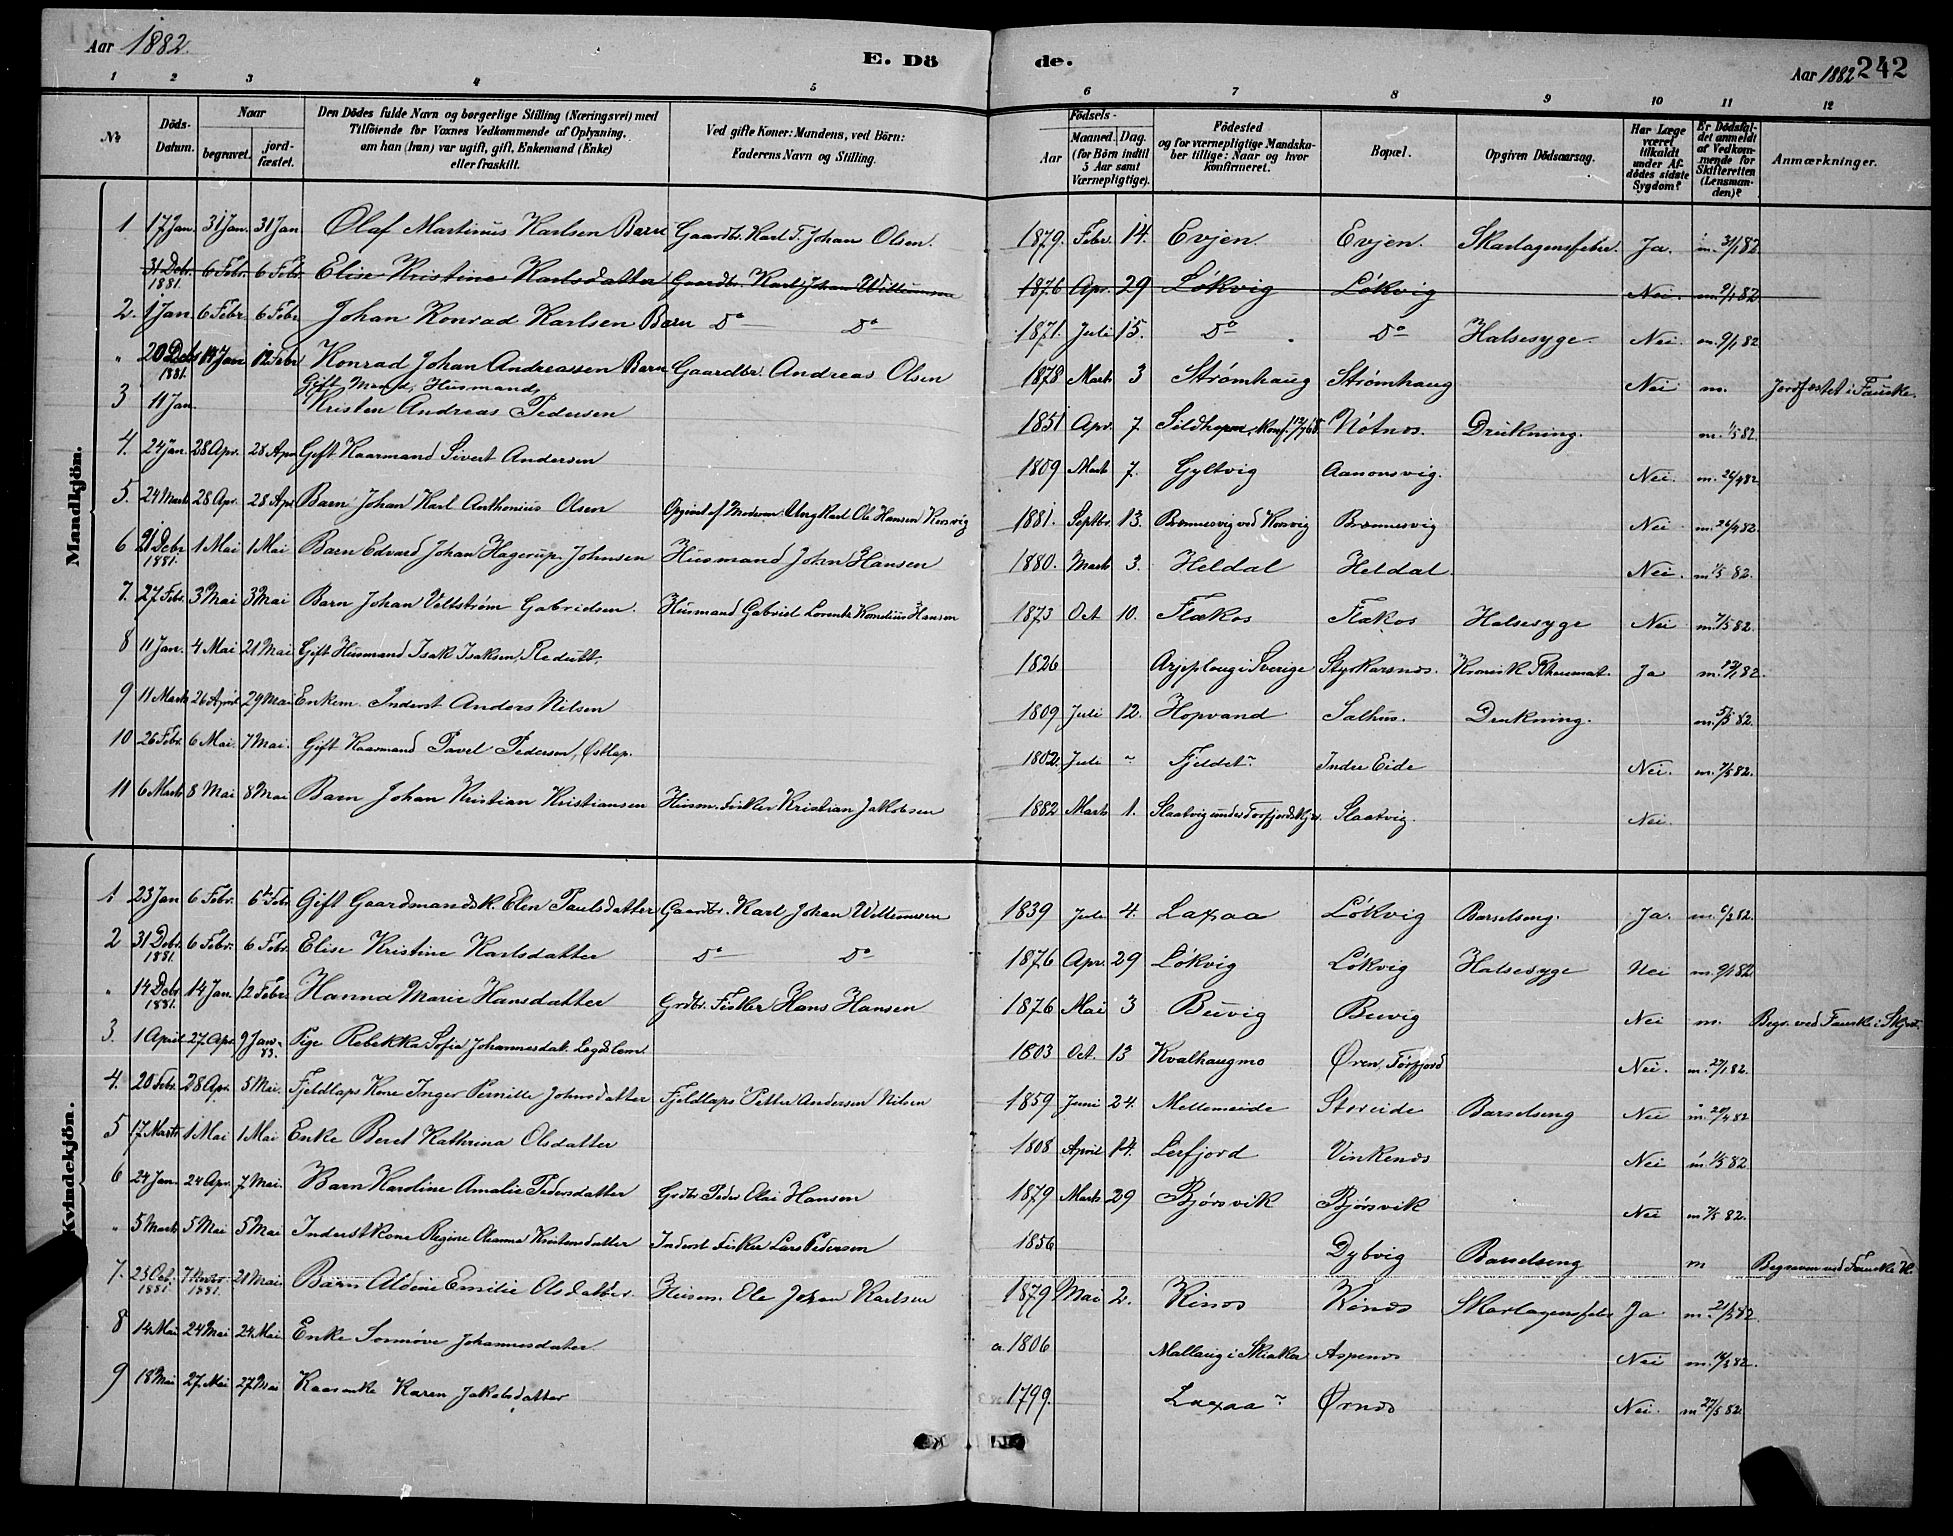 Aar 1882.
E. Dö
de.
Aar 1882 242
1 2 3 4 5 6 7 8 9 10 11 12
No
Döds-Datum.
Naar
begravet.
jord-fæstet.
Den Dödes fulde Navn og borgerlige Stilling (Næringsvei) med
Tilföiende for Voxnes Vedkommende af Oplysning,
om han (hun) var ugift, gift, Enkemand (Enke)
eller fraskilt.
Ved gifte Koner: Mandens, ved Börn:
Faderens Navn og Stilling.
Födsels-
Aar
Maaned. Dag.
(for Börn indtil
5 Aar samt
Værnepligtige).
Födested
og for værnepligtige Mandska-
ber tillige: Naar og hvor
konfirmeret.
Bopæl.
Opgiven Dödsaarsag.
Har Læge
været
tilkaldt
under Af-
dödes sidste
Sygdom?
Er Dödsfal-
det anmeldt
af Vedkom-
mende for
Skifteretten
(Lensman-
den)?
Anmærkninger.
Mandkjön.
1 17 Jan. 31 Jan. 31 Jan Olaf Martinus Karlsen Barn Gaardbr. Karl T. Johan Olsen. 1879. Febr. 14. Evjen. Evjen. Skarlagensfeber. Ja. m. 31/1 82
31 Debr. 1881. 6 Febr. 6 Febr. Elise Kristine Karlsdatter Gaardbr. Karl Johan Willumsen 1876 Apr. 29 Løkvig Løkvig Nei. m. 9/1 82
2. 1 Jan 6 Febr. 6 Febr. Johan Konrad Karlsen Barn Do Do 1871. Juli 15. Do Do Halsesyge Nei. m. 9/1 82
" 20 Debr 1881. 14 Jan 12 Febr Konrad Johan Andreassen Barn Gaardbr. Andreas Olsen 1878 Marts 3 Strømhaug Strømhaug Nei m. Jordfæstet i Fauske.
3 11 Jan. Gift Mand, Husmand Kristen Andreas Pedersen 1851 Apr. 7 Nøtnes. Drukning. m. 1/5 82.
4. 24 Jan. 28 Apr. 28 Apr Gift Kaarmand Sivert Andersen 1809 Marts 7. Gyltvig Aanonsvig. Nei. m. 26/4 82
5. 24 Marts 28 Apr. 28 Apr Barn Johan Karl Anthonius Olsen Opgivet af Moderen Ungkarl Ole Hansen Korsvig 1881. Septbr. 13. Brennesvig ved Korsvig Brennesvig Nei m. 26/4 82.
6 21 Debr 1881. 1 Mai 1 Mai Barn Edvard Johan Hagerup Johnsen Husmand John Hansen 1880. Marts 3. Heldal Heldal. Nei. m. 1/5 82.
7. 27 Febr. 3 Mai 3 Mai Barn Johan Veltstrøm Gabrielsen. Husmand Gabriel Lorents Kornelius Hansen 1873 Oct 10. Flækos Flækos Halsesyge Nei m. 7/5 82.
8 11 Jan. 4 Mai 21 Mai Gift Husmand Isak Isaksen, Redutt. 1826 Arjeploug i Sverige Styrkarsnes. Kronisk Rheumat. Ja m. 82.
9 11 Marts 26 April 29 Mai Enkem. Inderst Anders Nilsen 1809 Juli 12. Hopvand Salhus. Drukning. m. 5/5 82.
10 26 Febr. 6 Mai. 7 Mai. Gift Kaarmand Pavel Pedersen, Østlap. 1802. Juli " Fjeldet " Indre Eide Nei. m. 7/5 82.
11 6 Marts 8 Mai 8 Mai Barn Johan Kristian Kristiansen Husm. Fisker Kristian Jakobsen 1882 Marts 1. Slaatvig under Torfjordskjær Slaatvig. Nei.
Kvindekjön.
1 23 Jan 6 Febr. 6te Febr. Gift Gaardmandsk. Elen Paulsdatter Gaardbr. Karl Johan Willumsen 1839 Juli 4. Laxaa Løkvig Barselseng. Ja. m. 6/2 82.
2 31 Debr. 1881. 6 Febr. 6 Febr. Elise Kristine Karlsdatter Do Do 1876 Apr. 29 Løkvig Løkvig Halsesyge Nei m. 9/1 82.
" 14 Debr 1881. 14 Jan. 12 Febr. Hanna Marie Hansdatter Grdbr. Fisker Hans Hansen 1876 Mai 3 Buvig Buvig Nei m. Begr. ved Fauske i Skjerst.
3. 1 April 27 Apr. 9 Jan 83. Pige Rebekka Sofia Johannesdat. Legdslem. 1803 Oct. 13 Kvalhaugmo Øren, Tørfjord Nei. m. 27/1 82.
4. 20 Febr. 28 Apr. 5 Mai. Fjeldlaps Kone Inger Pernille Johnsdatter Fjeldlaps Petter Andersen Nilsen 1859 Juni 24. Mellemeide Storeide Barselseng Nei m. 28/4 82
5 17 Marts 1 Mai 1 Mai Enke Beret Kathrina Olsdatter 1808 April 14. Lerfjord Vinkenes Nei m. 1/5 82.
6 24 Jan. 24 Apr. 7 Mai. Barn Karoline Amalie Pedersdatter Grdbr. Peder Olai Hansen 1879 Marts 29 Bjørsvik Bjørsvik Nei m 7/5 82.
" 5 Marts 5 Mai 5 Mai Inderstkone Regine Oleanna Kristensdatter Inderst Fisker Lars Pedersen 1856 Dybvig Barselseng m Begraven ved Fauske K.
7. 23 Oct. 1881. 7 Novbr 1881. 21 Mai. Barn Aldine Emilie Olsdatter. Husm. Ole Johan Karlsen 1879 Mai 2. Kines Kines Skarlagensfeber Ja m. 21/5 82.
8 14 Mai 24 Mai 24 Mai Enke Sonnøve Johannesdatter. a. 1806 Mallaug i Skiaker Aspenes Nei m. 82.
9 18 Mai 27 Mai 27 Mai Kaarenke Karen Jakobsdatter 1799. Laxaa " Ørnes Nei. m 27/5 82.